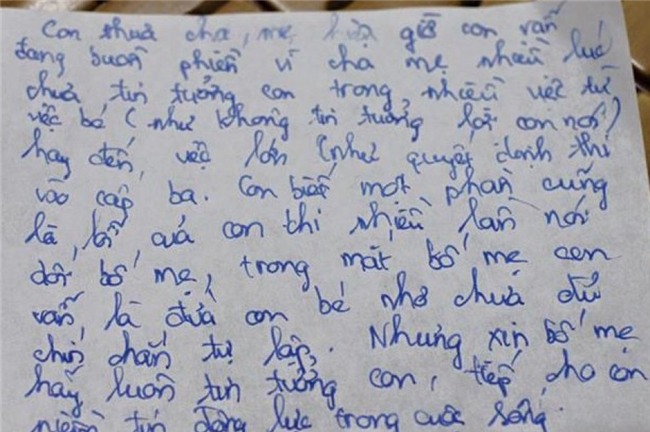 Con thưa cha, mẹ bây giờ con vẫn
đang buồn phiền vì cha mẹ nhiều lúc
chưa tin tưởng con trong nhiều việc từ
việc bé (như không tin tưởng lời con nói)
hay đến việc lớn (như quyết định thi
vào cấp ba. Con biết một phần cũng
là quá con thi nhiều lần nói
dối bố mẹ, trong mắt bố mẹ con
vẫn là đứa con bé nhỏ chưa đủ
chín chắn tự lập. Nhưng xin bố mẹ
hãy luôn tin tưởng con, tiếp cho con
niềm tin động lực trong cuộc sống.